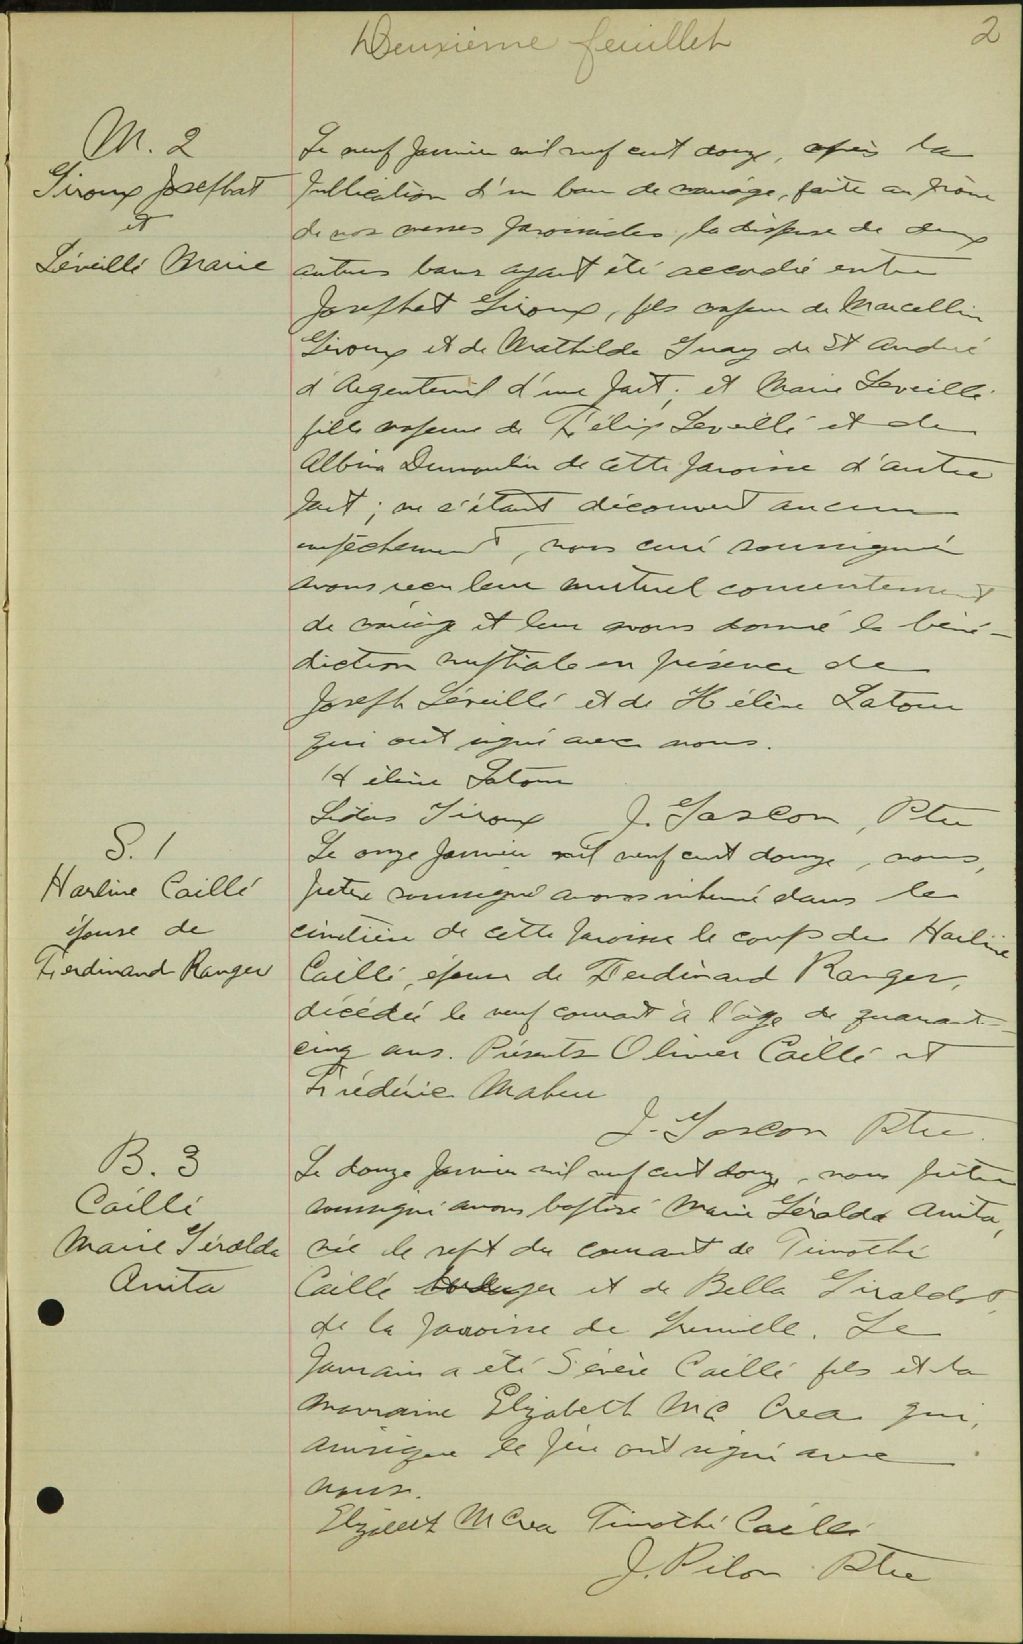 Deuxième feuillet 2
M. 2
Giroux Josephat
et
Léveillé Marie
Le neuf Janvier mil neuf cent douze, après la
publication d'un ban de mariage, faite au prône
de nos messes paroissiales, la dispense de deux
autres bans ayant été accordée entre
Josephat Giroux, fils majeur de Marcellin
Giroux et de Mathilde Guay de St André
d'Argenteuil d'une part; et Marie Léveillé
fille majeure de Félix Léveillé et de
Albina Dumoulin de cette paroisse d'autre
part; ne s'étant découvert aucun
empêchement, nous curé soussigné
avons reçu leur mutuel consentement
de mariage et leur avons donné la béné-
diction nuptiale en présence de
Joseph Léveillé et de Hélène Latour
qui ont signé avec nous.
Hélène Latour
Giroux J. Gascon, Ptre
S. 1
Harline Caillé
épouse de
Ferdinand Ranger
Le onze Janvier mil neuf cent douze, nous,
prêtre soussigné avons inhumé dans le
cimetière de cette paroisse le corps de Harline
Caillé, épouse de Ferdinand Ranger,
décédée le neuf courant à l'âge de quarante-
cinq ans. Présents Olivier Caillé et
Frédéric Maheu
J. Gascon Ptre.
B. 3
Caillé
Marie Géralda
Anita
Le douze Janvier mil neuf cent douze, nous prêtre
soussigné avons baptisé Marie Géralda Anita,
née le sept du courant de Timothé
Caillé et de Bella Giraldo
de la paroisse de Grenville. Le
parrain a été Sévère Caillé fils et la
marraine Elizabeth Mc Crea qui,
ainsi que le père ont signé avec
nous.
Elizabeth McCrea Timothé Caillé
J. Pilon Ptre